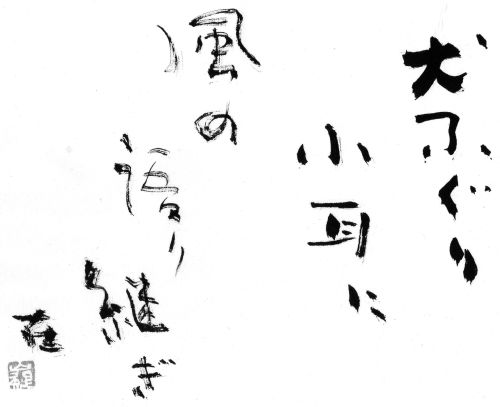 犬ふぐり
小耳に
風の
語り
継ぎ
在